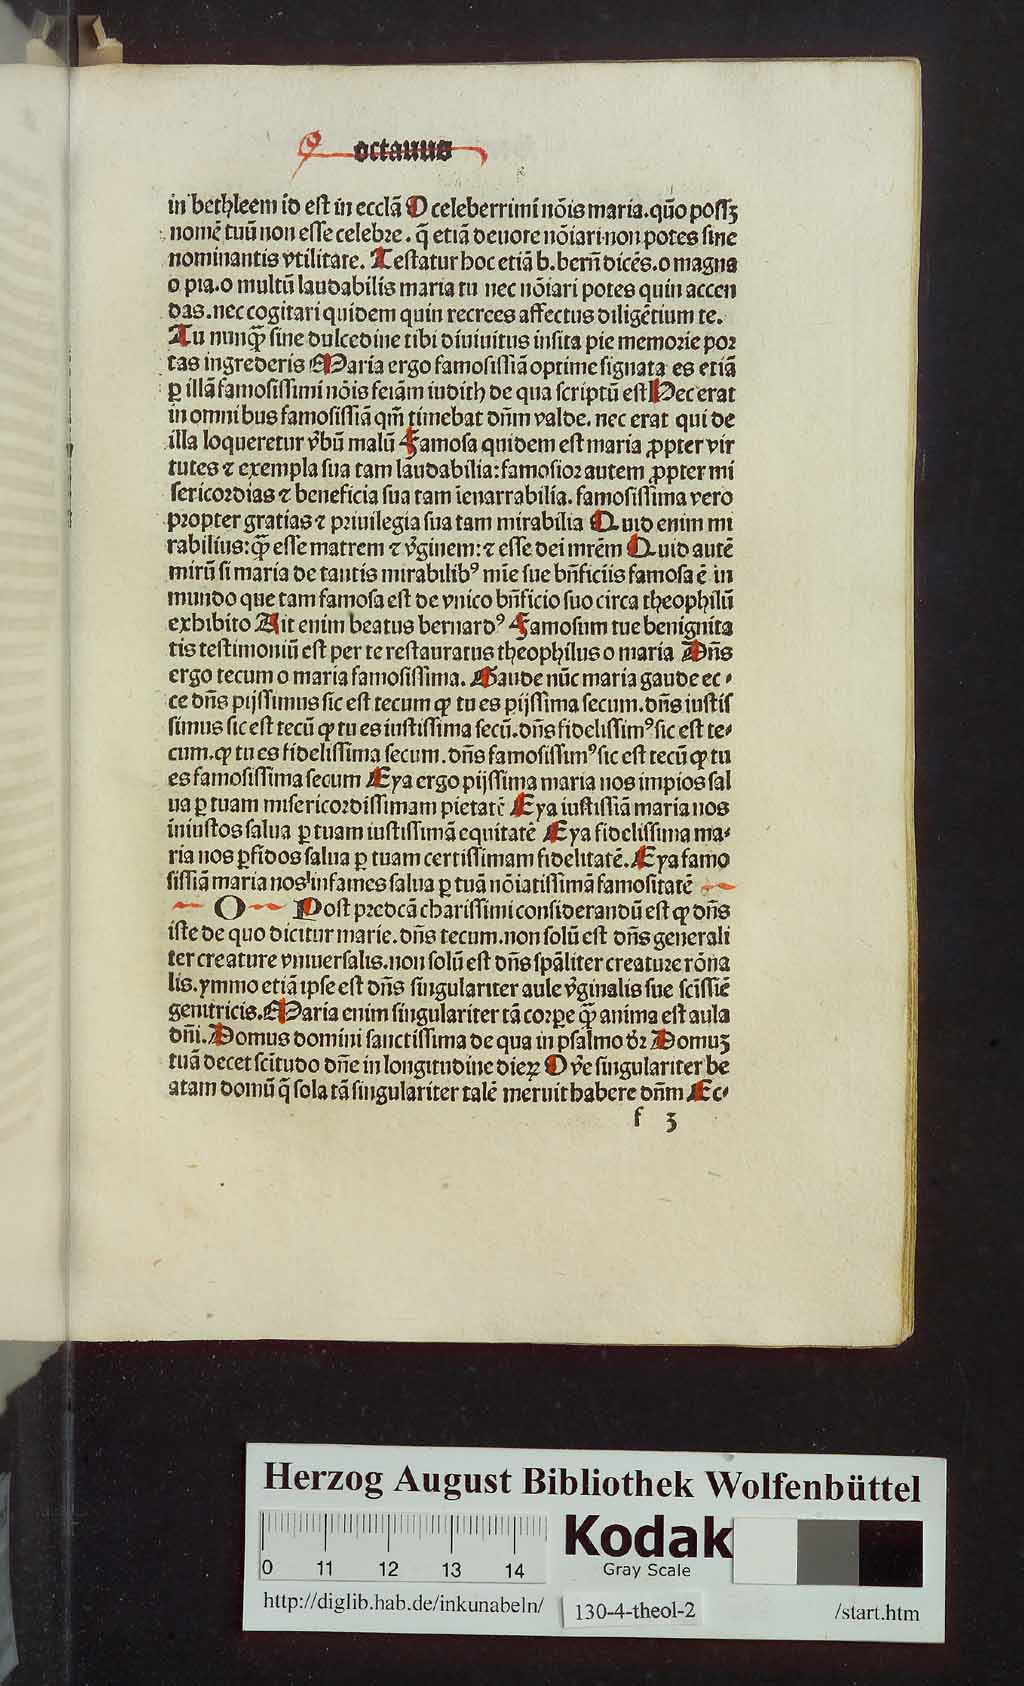 octauus
in bethleem id est in ecclā O celeberrimi nōis maria. quō possꝫ
nomē tuū non esse celebre. q̄ etiā deuote nōiari non potes sine
nominantis vtilitate. Testatur hoc etiā b. berñ dicēs. o magna
o pia. o multū laudabilis maria tu nec nōiari potes quin accen
das. nec cogitari quidem quin recrees affectus diligētium te.
Tu nunqꝫ̄ sine dulcedine tibi diuinitus insita pie memorie por
tas ingrederis Maria ergo famosissiā optime signata es etiā
ꝑ illā famosissimi nōis feiām iudith de qua scriptū est Hec erat
in omnibus famosissiā qm̄ timebat dn̄m valde. nec erat qui de
illa loqueretur v̓bū malū Famosa quidem est maria ꝓpter vir
tutes ⁊ exempla sua tam laudabilia: famosior autem ꝓpter mi
sericordias ⁊ beneficia sua tam īenarrabilia. famosissima vero
propter gratias ⁊ priuilegia sua tam mirabilia Quid enim mi
rabilius: qꝫ̄ esse matrem ⁊ v̓ginem: ⁊ esse dei mrēm Quid autē
mirū si maria de tantis mirabilibꝰ mīe sue bn̄ficiis famosa ē in
mundo que tam famosa est de vnico bn̄ficio suo circa theophilū
exhibito Ait enim beatus bernardꝰ Famosum tue benignita
tis testimoniū est per te restauratus theophilus o maria Dn̄s
ergo tecum o maria famosissima. Gaude nūc maria gaude ec⸗
ce dn̄s pijssimus sic est tecum ꝙ tu es pijssima secum. dn̄s iustis
simus sic est tecū ꝙ tu es iustissima secū. dn̄s fidelissimꝰ sic est te⸗
cum. ꝙ tu es fidelissima secum. dn̄s famosissimꝰ sic est tecū ꝙ tu
es famosissima secum Eya ergo pijssima maria nos impios sal
ua ꝑ tuam misericordissimam pietatē Eya iustissiā maria nos
iniustos salua ꝑ tuam iustissimā equitatē Eya fidelissima ma⸗
ria nos ꝑfidos salua ꝑ tuam certissimam fidelitatē. Eya famo
sissiā maria nos infames salua ꝑ tuā nōiatissimā famositatē
O Post predcā charissimi considerandū est ꝙ dn̄s
iste de quo dicitur marie. dn̄s tecum. non solū est dn̄s generali
ter creature vniuersalis. non solū est dn̄s spāliter creature rōna
lis. ymmo etiā ipse est dn̄s singulariter aule v̓ginalis sue scīssiē
genitricis. Maria enim singulariter tā corpe qꝫ̄ anima est aula
dn̄i. Domus domini sanctissima de qua in psalmo dr̄ Domuꝫ
tuā decet scītudo dn̄e in longitudine dieꝝ O v̓e singulariter be
atam domū q̄ sola tā singulariter talē meruit habere dn̄m Ec⸗
f 3
Herzog August Bibliothek Wolfenbüttel
Kodak
Gray Scale
0 11 12 13 14
http://diglib.hab.de/inkunabeln/ 130-4-theol-2 /start.htm